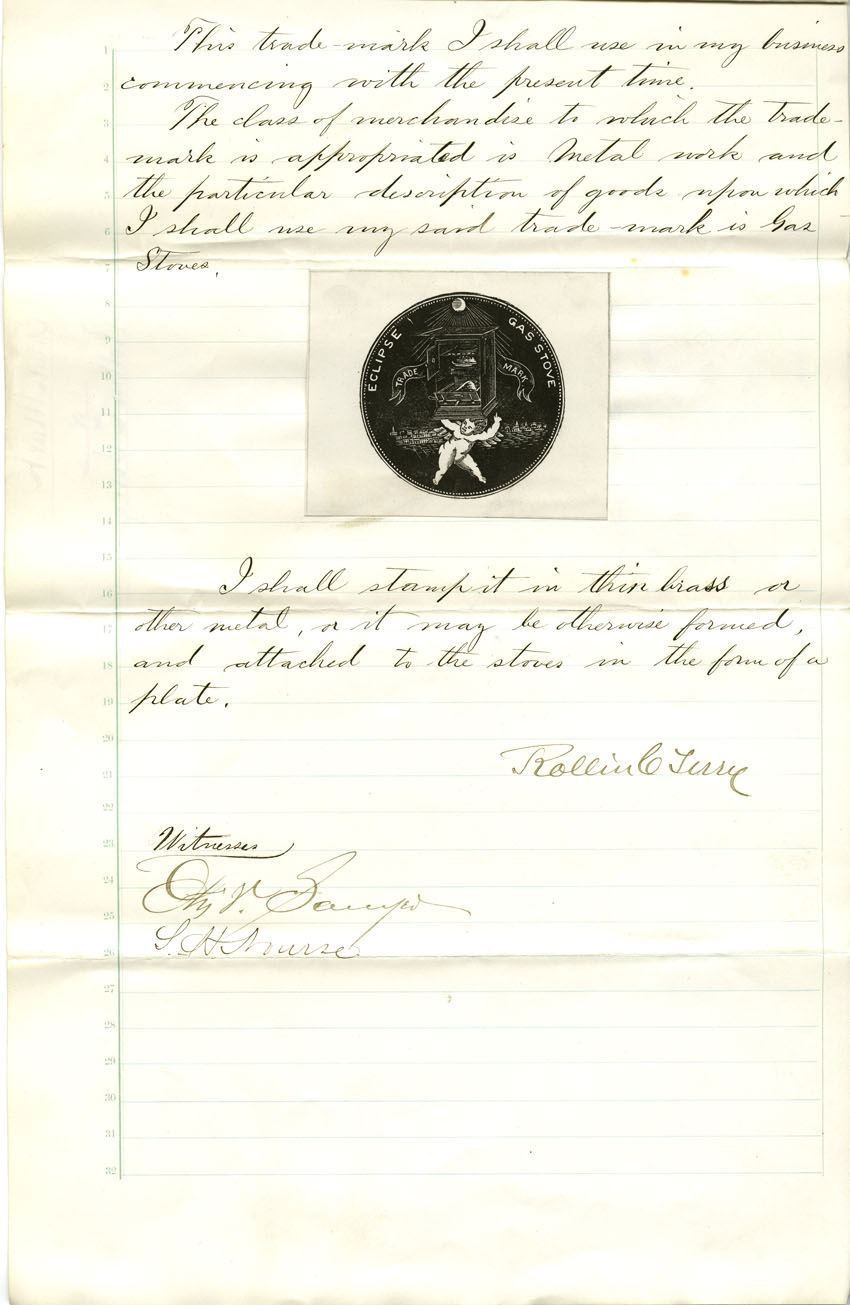 This trade-mark I shall use in my business
commencing with the present time.
The class of merchandise to which the trade-
mark is appropriated is Metal work and
the particular description of goods upon which
I shall use my said trade-mark is Gas
Stoves.
ECLIPSE GAS STOVE
TRADE MARK
I shall stamp it in thin brass or
other metal, or it may be otherwise formed,
and attached to the stoves in the form of a
plate.
Rollin C Terry
Witnesses
S. H. Nourse
1
2
3
4
5
6
7
8
9
10
11
12
13
14
15
16
17
18
19
20
21
22
23
24
25
26
27
28
29
30
31
32